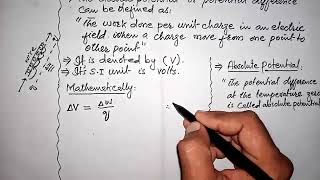 potential difference
Can be defined as:
"The work done per unit-charge in an electric
field when a charge move from one point to
other point"
⇒ It is denoted by (V).
⇒ Its S.I unit is volts.
Mathemetically:
ΔV = ΔW / q
⇒ Absolute Potential.
"The potential difference
at the temperature zero
is called absolute potential